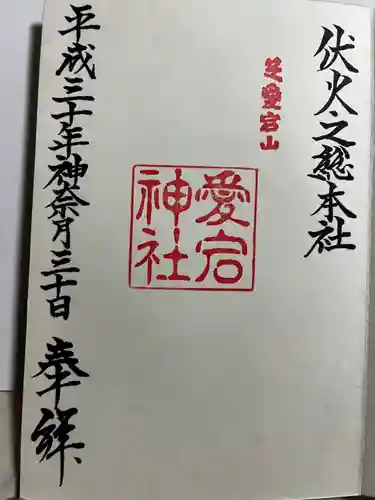 伏火之総本社
芝愛宕山
愛宕
神社
平成三十年神奈月三十日
奉拝